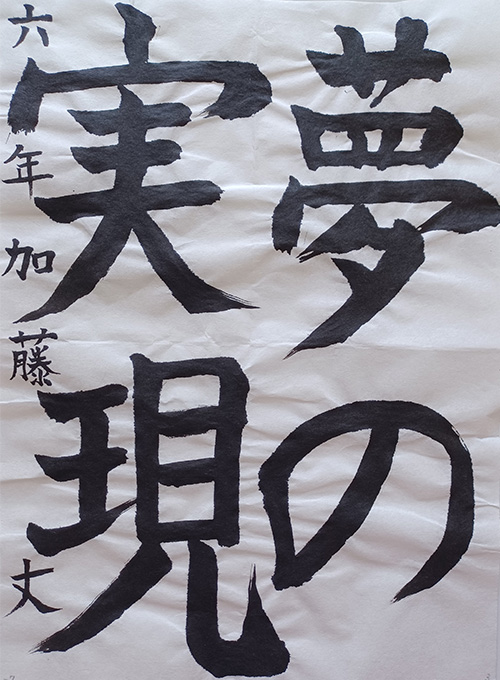 夢の
実現
六年加藤丈